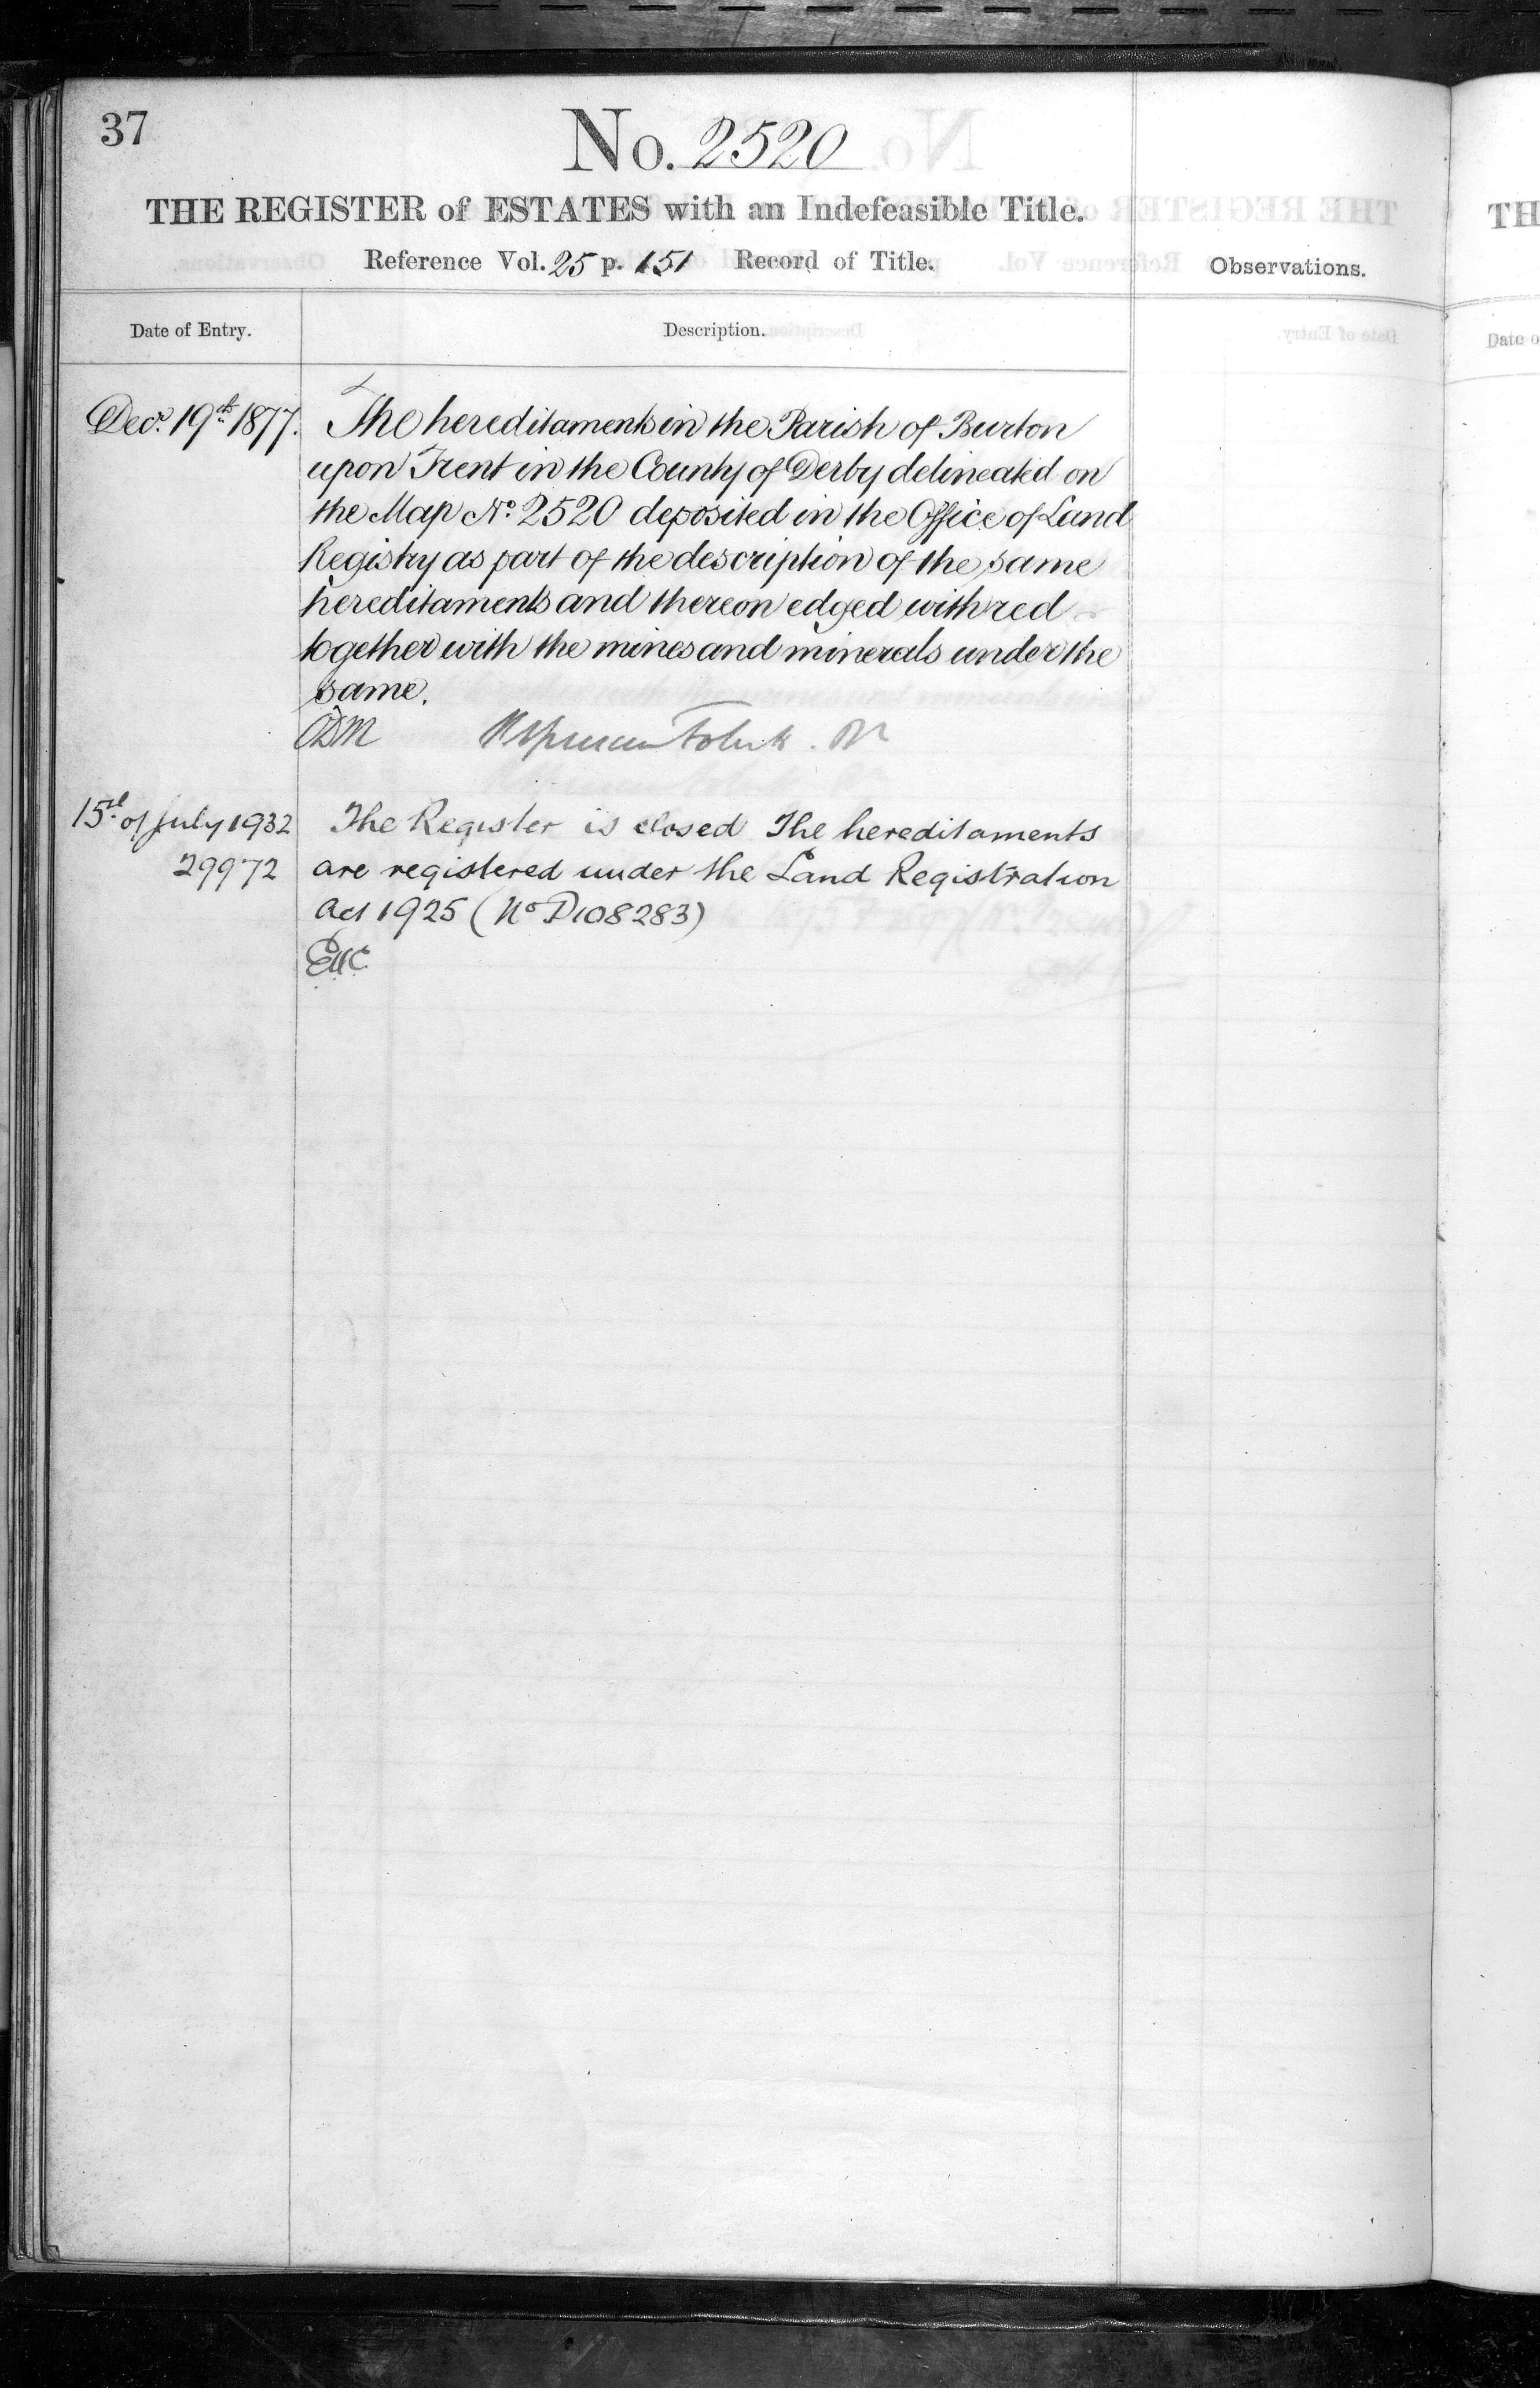 37
No. 2520
THE REGISTER of ESTATES with an Indefeasible Title.
Reference Vol. 25 p. 151 Record of Title.
Observations.
Date of Entry.
Description.
Decr. 19th 1877.
The hereditaments in the Parish of Burton
upon Trent in the County of Derby delineated on
the Map No. 2520 deposited in the Office of Land
Registry as part of the description of the same
hereditaments and thereon edged with red
together with the mines and minerals under the
same.
15th of July 1932
29972
The Register is closed The hereditaments
are registered under the Land Registration
Act 1925 (No D108283)
TH
Date o